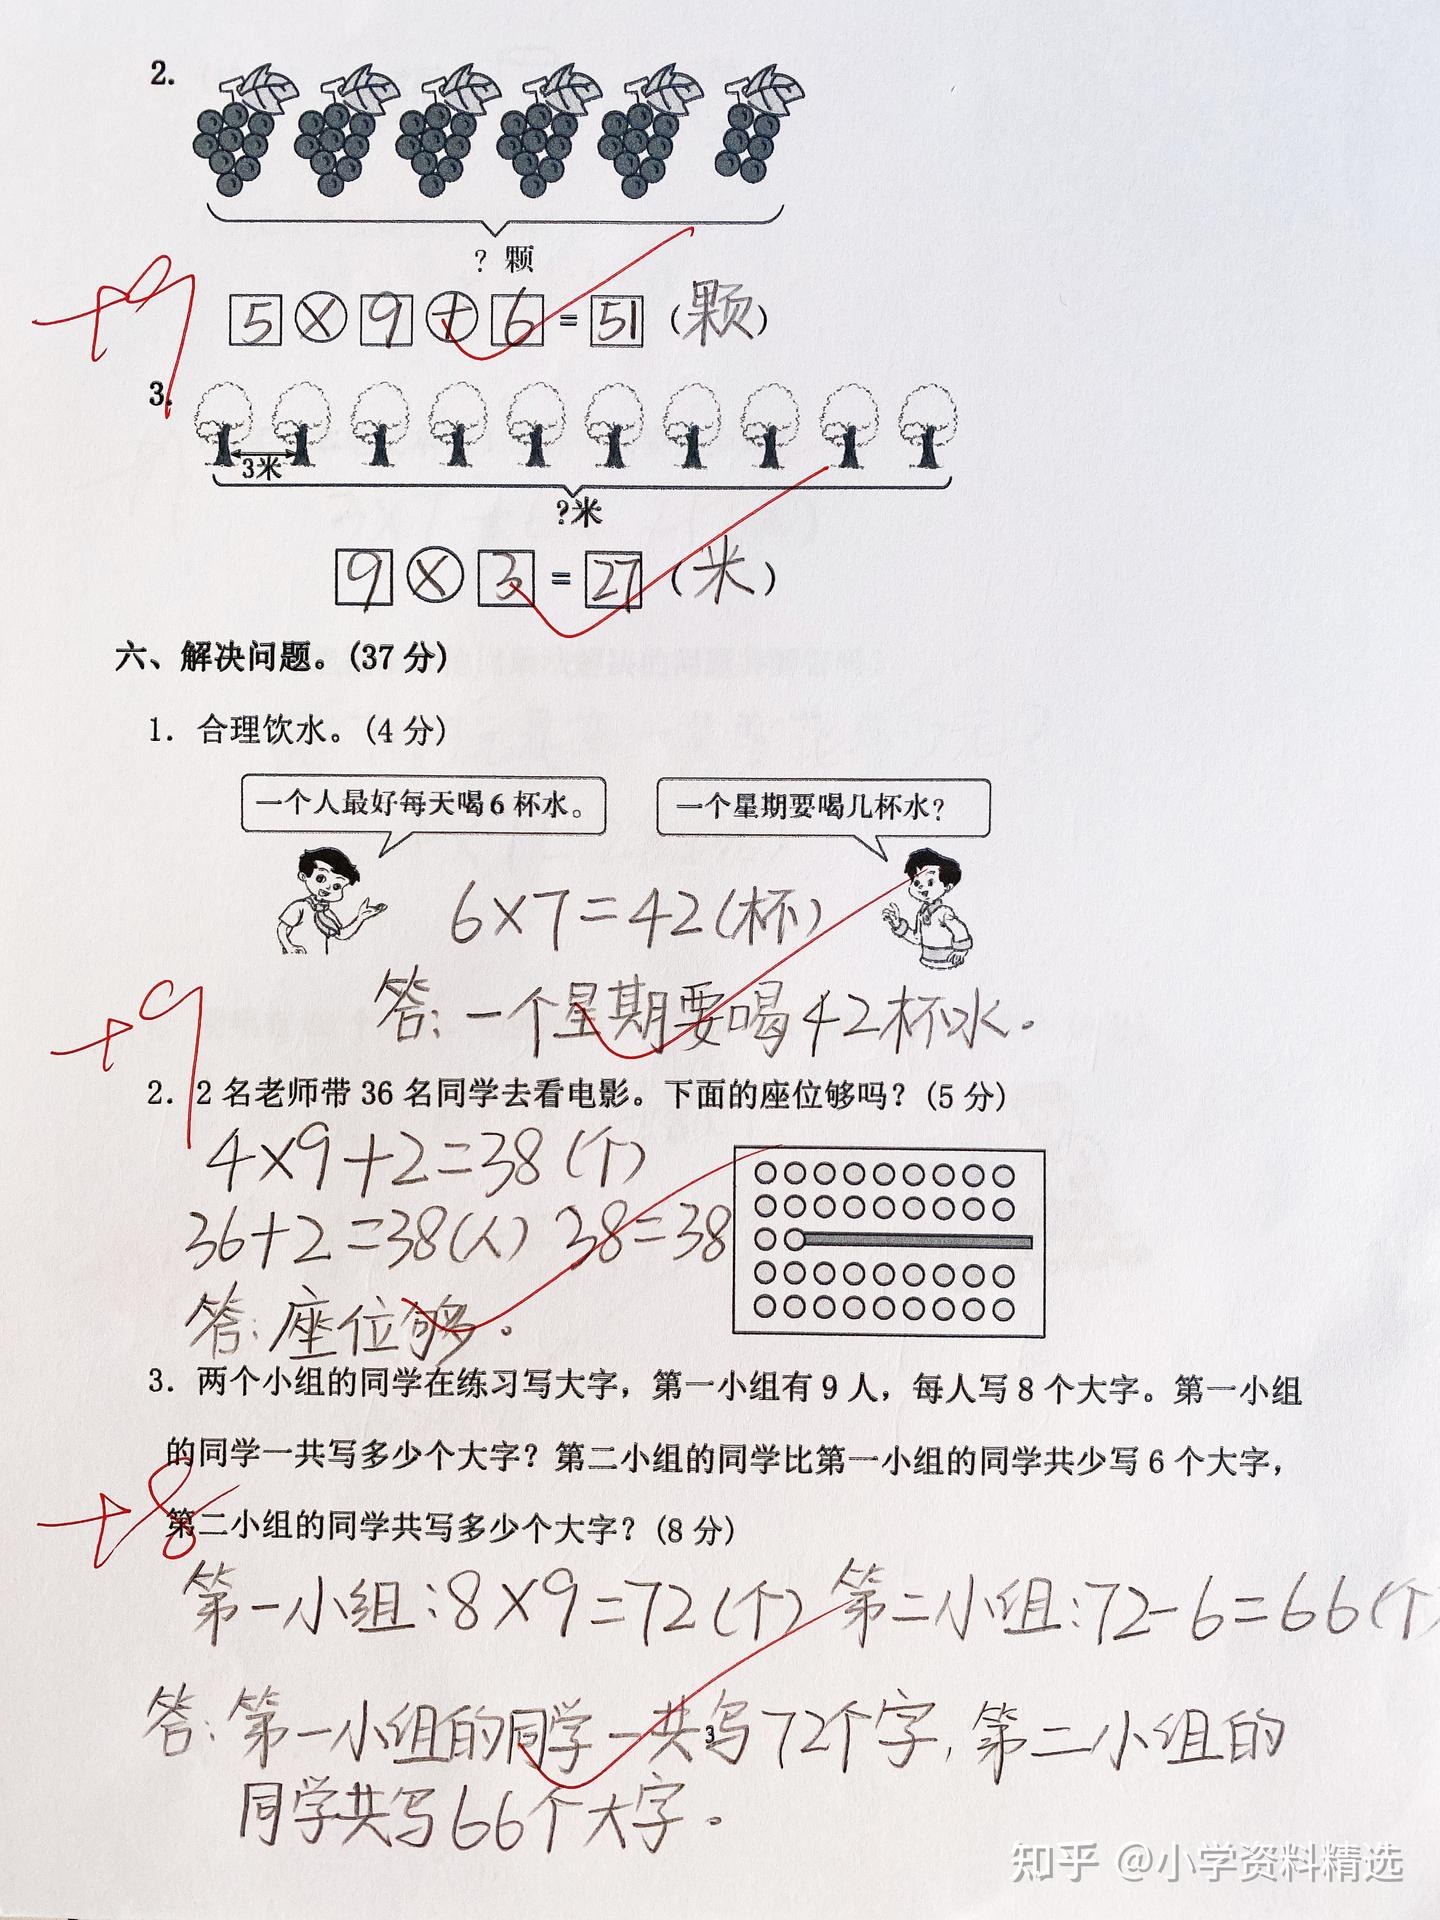 2.
? 颗
+9
5 × 9 + 6 = 51 (颗)
3.
3米
?米
9 × 3 = 27 (米)
六、解决问题。(37 分)
1. 合理饮水。(4 分)
一个人最好每天喝6杯水。 一个星期要喝几杯水?
6×7=42(杯)
答:一个星期要喝42杯水.
+9
2. 2 名老师带 36 名同学去看电影。下面的座位够吗? (5 分)
4×9+2=38(个)
36+2=38(人) 38=38
答:座位够。
3. 两个小组的同学在练习写大字,第一小组有 9 人,每人写 8 个大字。第一小组
的同学一共写多少个大字? 第二小组的同学比第一小组的同学共少写 6 个大字,
+8
第二小组的同学共写多少个大字? (8 分)
第一小组:8×9=72(个) 第二小组:72-6=66(个)
答:第一小组的同学一共写72个字,第二小组的
3
同学共写66个大字。
知乎 @小学资料精选